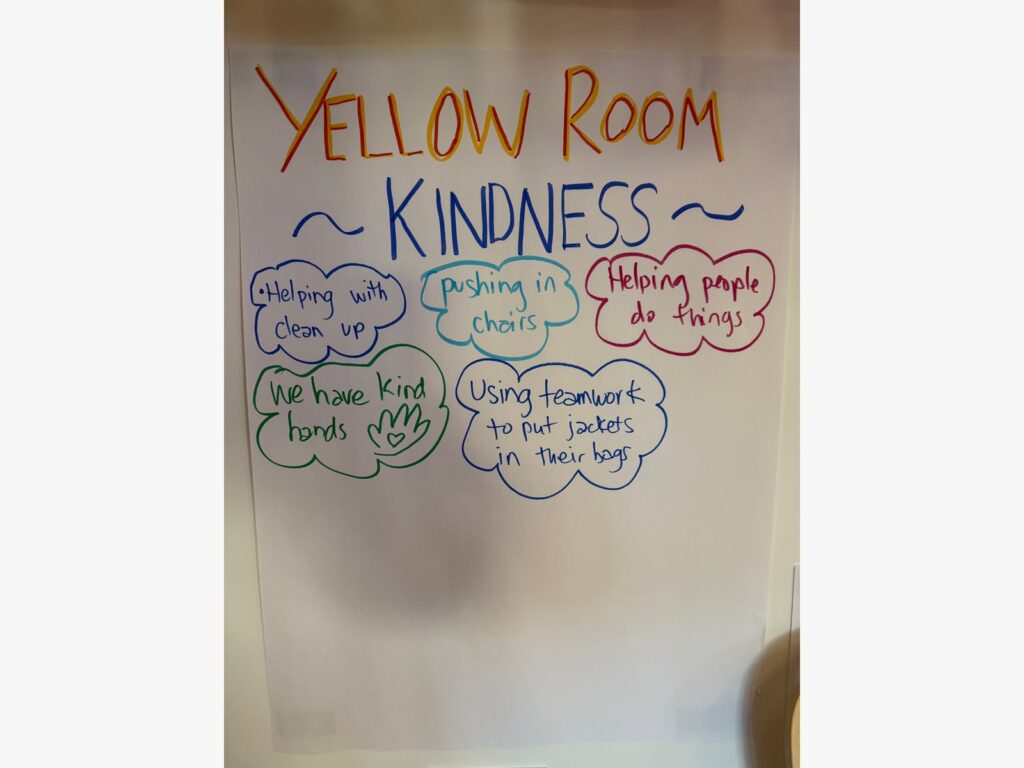 YELLOW ROOM
~ KINDNESS ~
•Helping with
clean up
pushing in
chairs
Helping people
do things
We have kind
hands
Using teamwork
to put jackets
in their bags